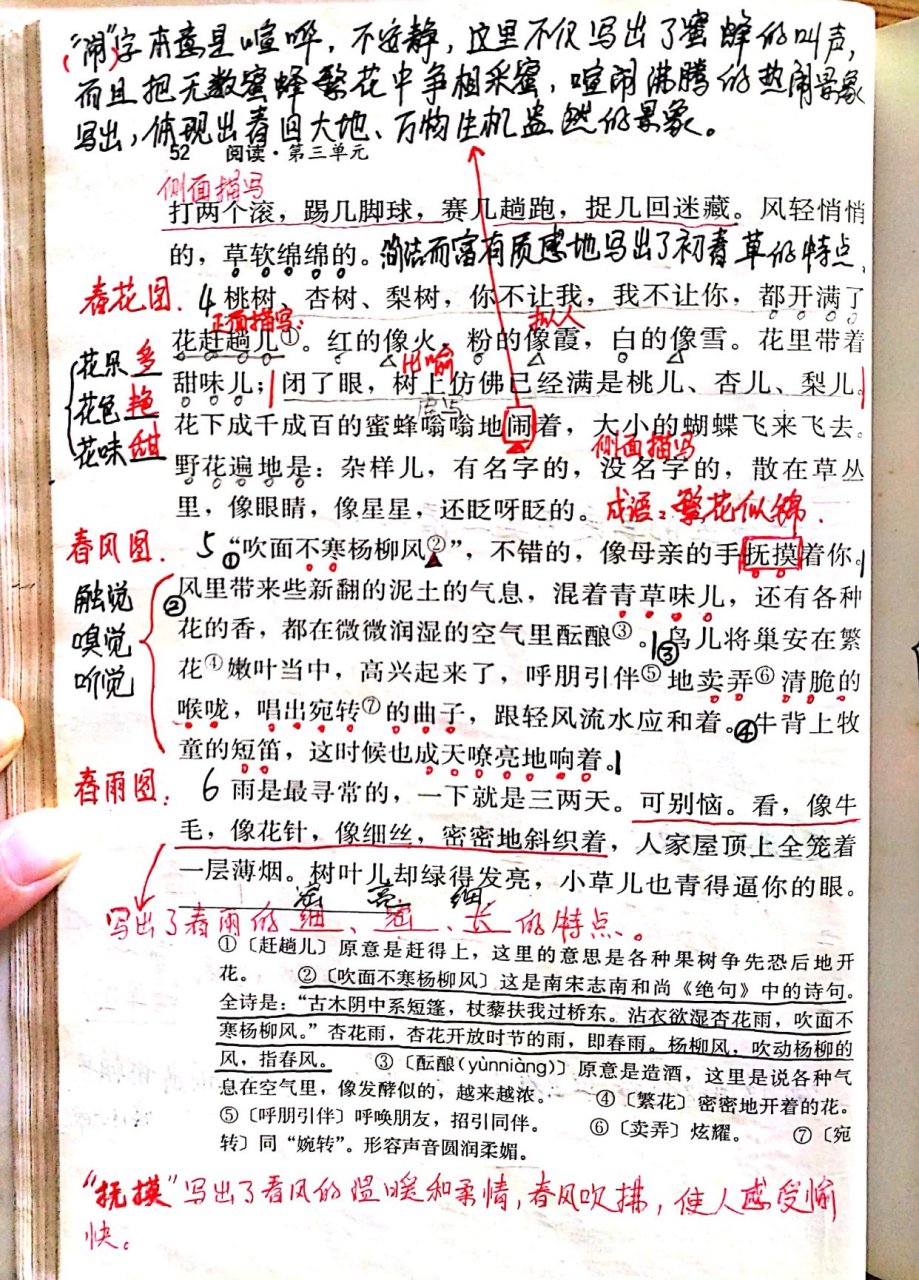 “闹”字本意是喧哗，不安静，这里不仅写出了蜜蜂的叫声，
而且把无数蜜蜂繁花中争相采蜜，喧闹沸腾的热闹景象
写出，体现出春回大地、万物生机盎然的景象。
52 阅读·第三单元
侧面描写
打两个滚，踢几脚球，赛几趟跑，捉几回迷藏。风轻悄悄
的，草软绵绵的。简洁而富有质感地写出了初春草的特点。
春花图. 4 桃树、杏树、梨树，你不让我，我不让你，都开满了
正面描写： 拟人
花赶趟儿①。红的像火，粉的像霞，白的像雪。花里带着
花朵多
花色艳
花味甜
比喻
甜味儿；闭了眼，树上仿佛已经满是桃儿、杏儿、梨儿。
虚写
花下成千成百的蜜蜂嗡嗡地闹着，大小的蝴蝶飞来飞去。
侧面描写
野花遍地是：杂样儿，有名字的，没名字的，散在草丛
里，像眼睛，像星星，还眨呀眨的。成语：繁花似锦.
春风图. 5 ①“吹面不寒杨柳风②”，不错的，像母亲的手抚摸着你。
触觉
嗅觉
听觉
②风里带来些新翻的泥土的气息，混着青草味儿，还有各种
花的香，都在微微润湿的空气里酝酿③。③鸟儿将巢安在繁
花④嫩叶当中，高兴起来了，呼朋引伴⑤地卖弄⑥清脆的
喉咙，唱出宛转⑦的曲子，跟轻风流水应和着。④牛背上牧
童的短笛，这时候也成天嘹亮地响着。
春雨图： 6 雨是最寻常的，一下就是三两天。可别恼。看，像牛
毛，像花针，像细丝，密密地斜织着，人家屋顶上全笼着
一层薄烟。树叶儿却绿得发亮，小草儿也青得逼你的眼。
密 亮 细
写出了春雨的细、密、长的特点。
①〔赶趟儿〕原意是赶得上，这里的意思是各种果树争先恐后地开
花。 ②〔吹面不寒杨柳风〕这是南宋志南和尚《绝句》中的诗句。
全诗是：“古木阴中系短篷，杖藜扶我过桥东。沾衣欲湿杏花雨，吹面不
寒杨柳风。”杏花雨，杏花开放时节的雨，即春雨。杨柳风，吹动杨柳的
风，指春风。 ③〔酝酿(yùnniàng)〕原意是造酒，这里是说各种气
息在空气里，像发酵似的，越来越浓。 ④〔繁花〕密密地开着的花。
⑤〔呼朋引伴〕呼唤朋友，招引同伴。 ⑥〔卖弄〕炫耀。 ⑦〔宛
转〕同“婉转”。形容声音圆润柔媚。
“抚摸”写出了春风的温暖和柔情，春风吹拂，使人感受愉
快。